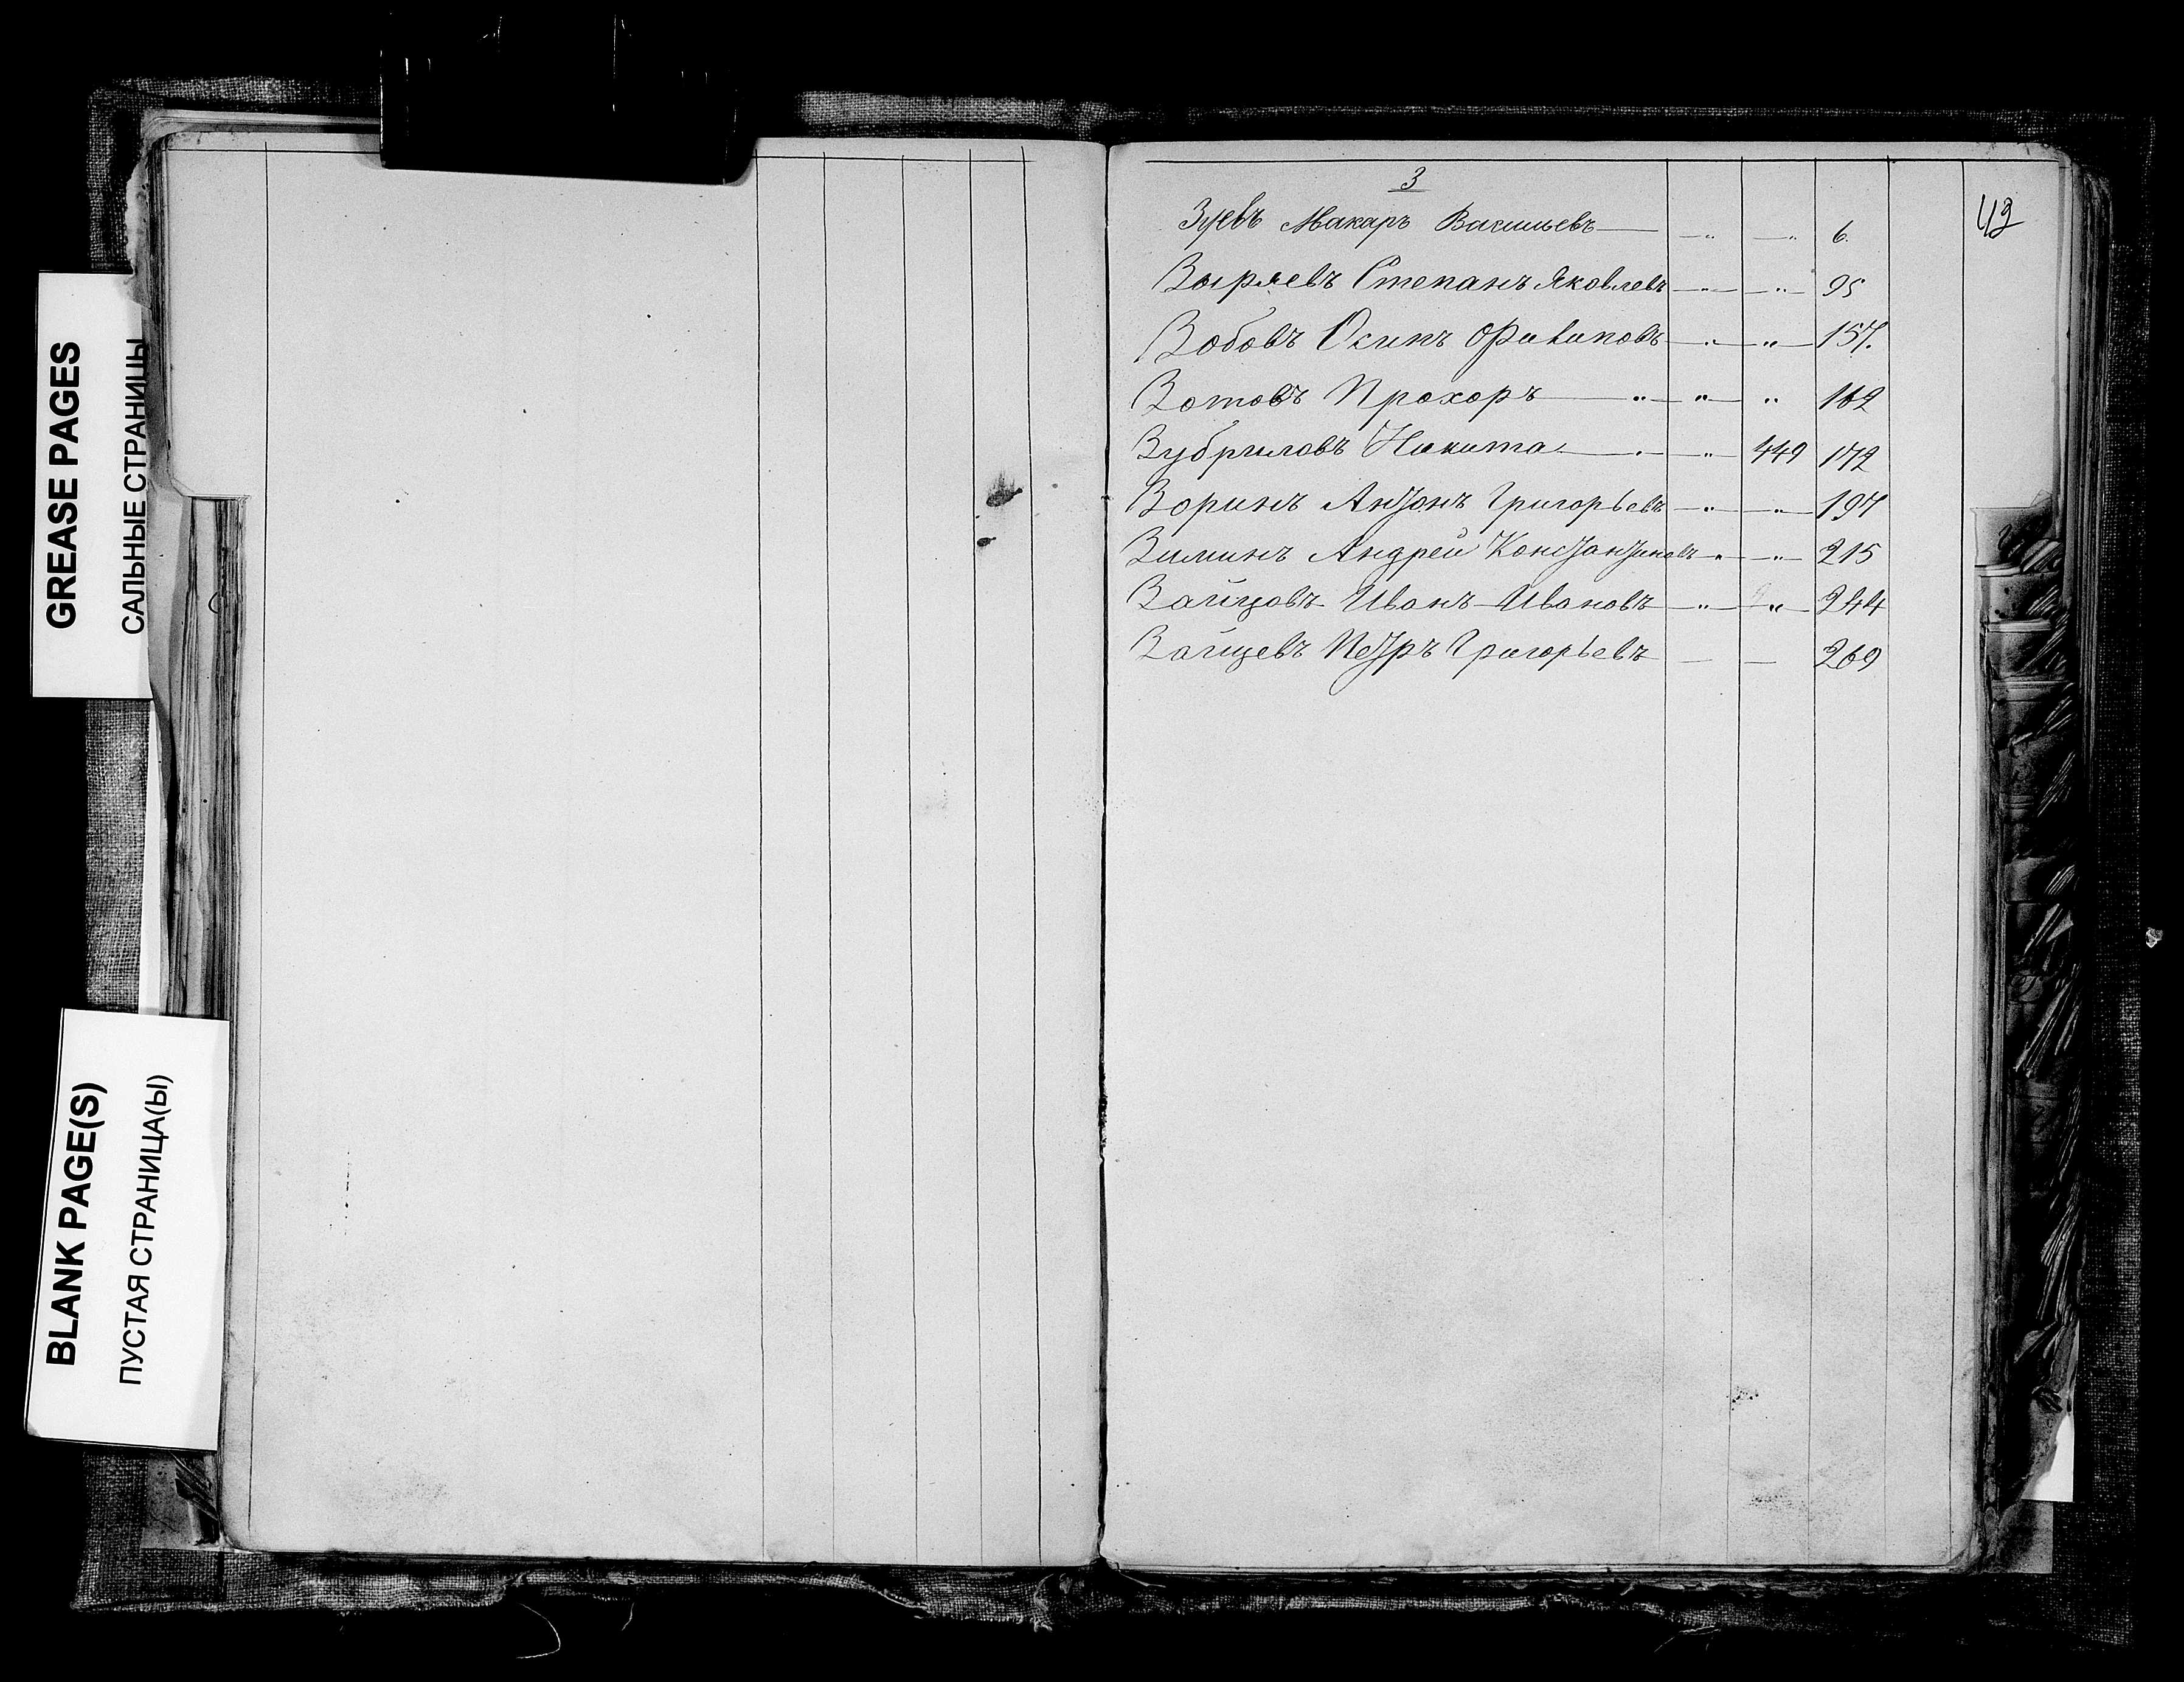 GREASE PAGES
САЛЬНЫЕ СТРАНИЦЫ
BLANK PAGE(S)
ПУСТАЯ СТРАНИЦА(Ы)
З
43
Зуевъ Макаръ Васильевъ — — „ — „ 6.
Зыряевъ Степанъ Яковлевъ — „ — „ — 95
Зобовъ Осипъ — „ — „ — 157.
Зотовъ Прохоръ — „ — „ — „ 162
Зубриловъ Никита — „ — „ — 449 172
Зоринъ Антонъ Григорьевъ — „ — „ — 197
Зиминъ Андрей Константиновъ — „ — „ — 215
Зайцовъ Иванъ Ивановъ — „ — „ — 244
Зайцевъ Петръ Григорьевъ — — 269